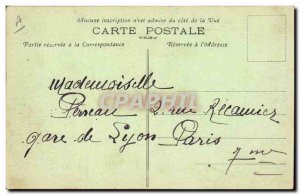 A
Aucune inscription n'est admise du côté de la Vue
CARTE POSTALE
Partie réservée à la Correspondance
Réservée à l'Adresse
Mademoiselle
2 rue Recamier
gare de Lyon Paris
7me
CPAPHIL